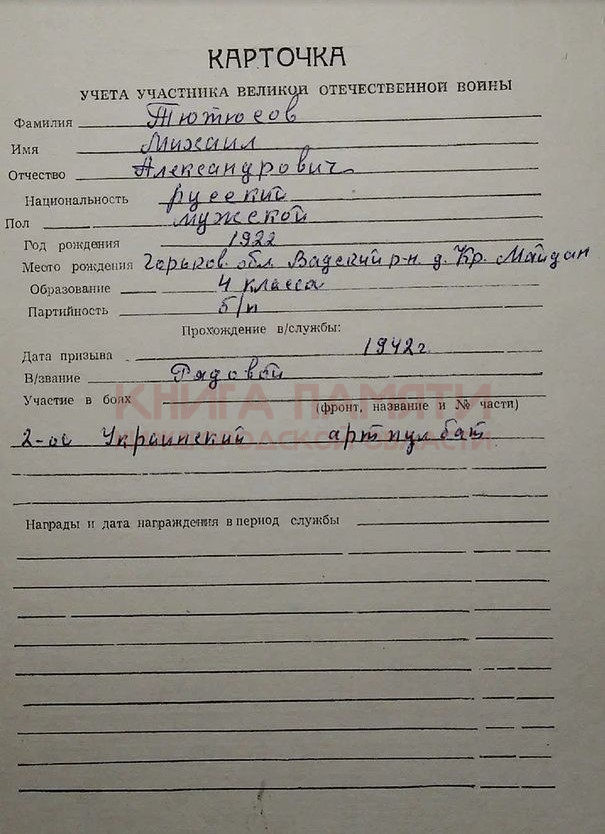 КАРТОЧКА
УЧЕТА УЧАСТНИКА ВЕЛИКОЙ ОТЕЧЕСТВЕННОЙ ВОЙНЫ
Фамилия Тютюсов
Имя Михаил
Отчество Александрович
Национальность русский
Пол мужской
Год рождения 1922
Место рождения Горьков. обл. Вадский р-н. д. Кр. Майдан
Образование 4 класса
Партийность б/п
Прохождение в/службы:
Дата призыва 1942г.
В/звание Рядовой
Участие в боях
КНИГА ПАМЯТИ
(фронт, название и № части)
НИЖЕГОРОДСКОЙ ОБЛАСТИ
2-ой Украинский артпулбат
Награды и дата награждения в период службы